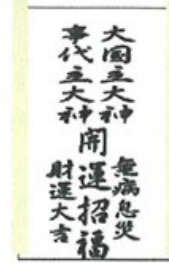 大國主大神
事代主大神
開運招福
無病息災
財運大吉